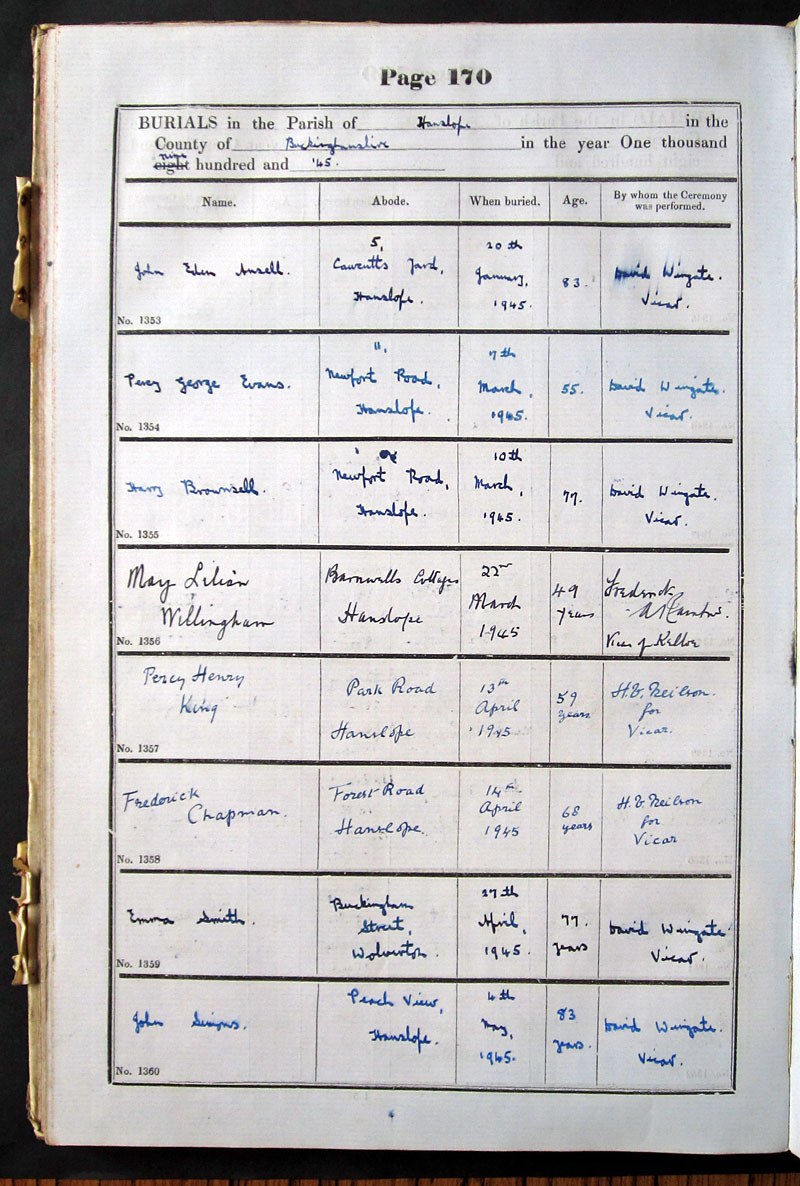 Page 170
BURIALS in the Parish of Hanslope in the
County of Buckinghamshire in the year One thousand
nine
eight hundred and '45.
Name. Abode. When buried. Age. By whom the Ceremony
was performed.
5, 20th
John Eden Ansell. Cawcutts Yard, January, 83. David Wingate.
Hanslope. 1945. Vicar.
No. 1353
11, 7th
Percy George Evans. Newport Road, March, 55. David Wingate.
Hanslope. 1945. Vicar.
No. 1354
10th
Harry Brownsell. Newport Road, March, 77. David Wingate.
Hanslope. 1945. Vicar.
No. 1355
May Lilian Barnwells Cottages 22nd 49 Frederick
Willingham Hanslope March years
1945 Vicar of Kelloe
No. 1356
Percy Henry Park Road 13th 59 H.V. Neilson.
King April years for
Hanslope 1945 Vicar.
No. 1357
Frederick Forest Road 14th 68 H.V. Neilson
Chapman. April years for
Hanslope. 1945 Vicar
No. 1358
Buckingham 27th
Emma Smith. Street, April, 77. David Wingate
Wolverton. 1945. years Vicar.
No. 1359
Peach View, 4th 83
John Simons. Hanslope. May, years. David Wingate.
1945. Vicar.
No. 1360